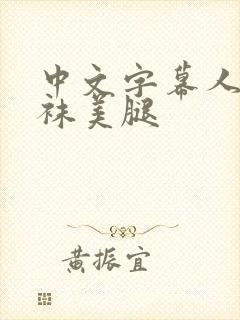 中文字幕人
袜美腿
黄振宜